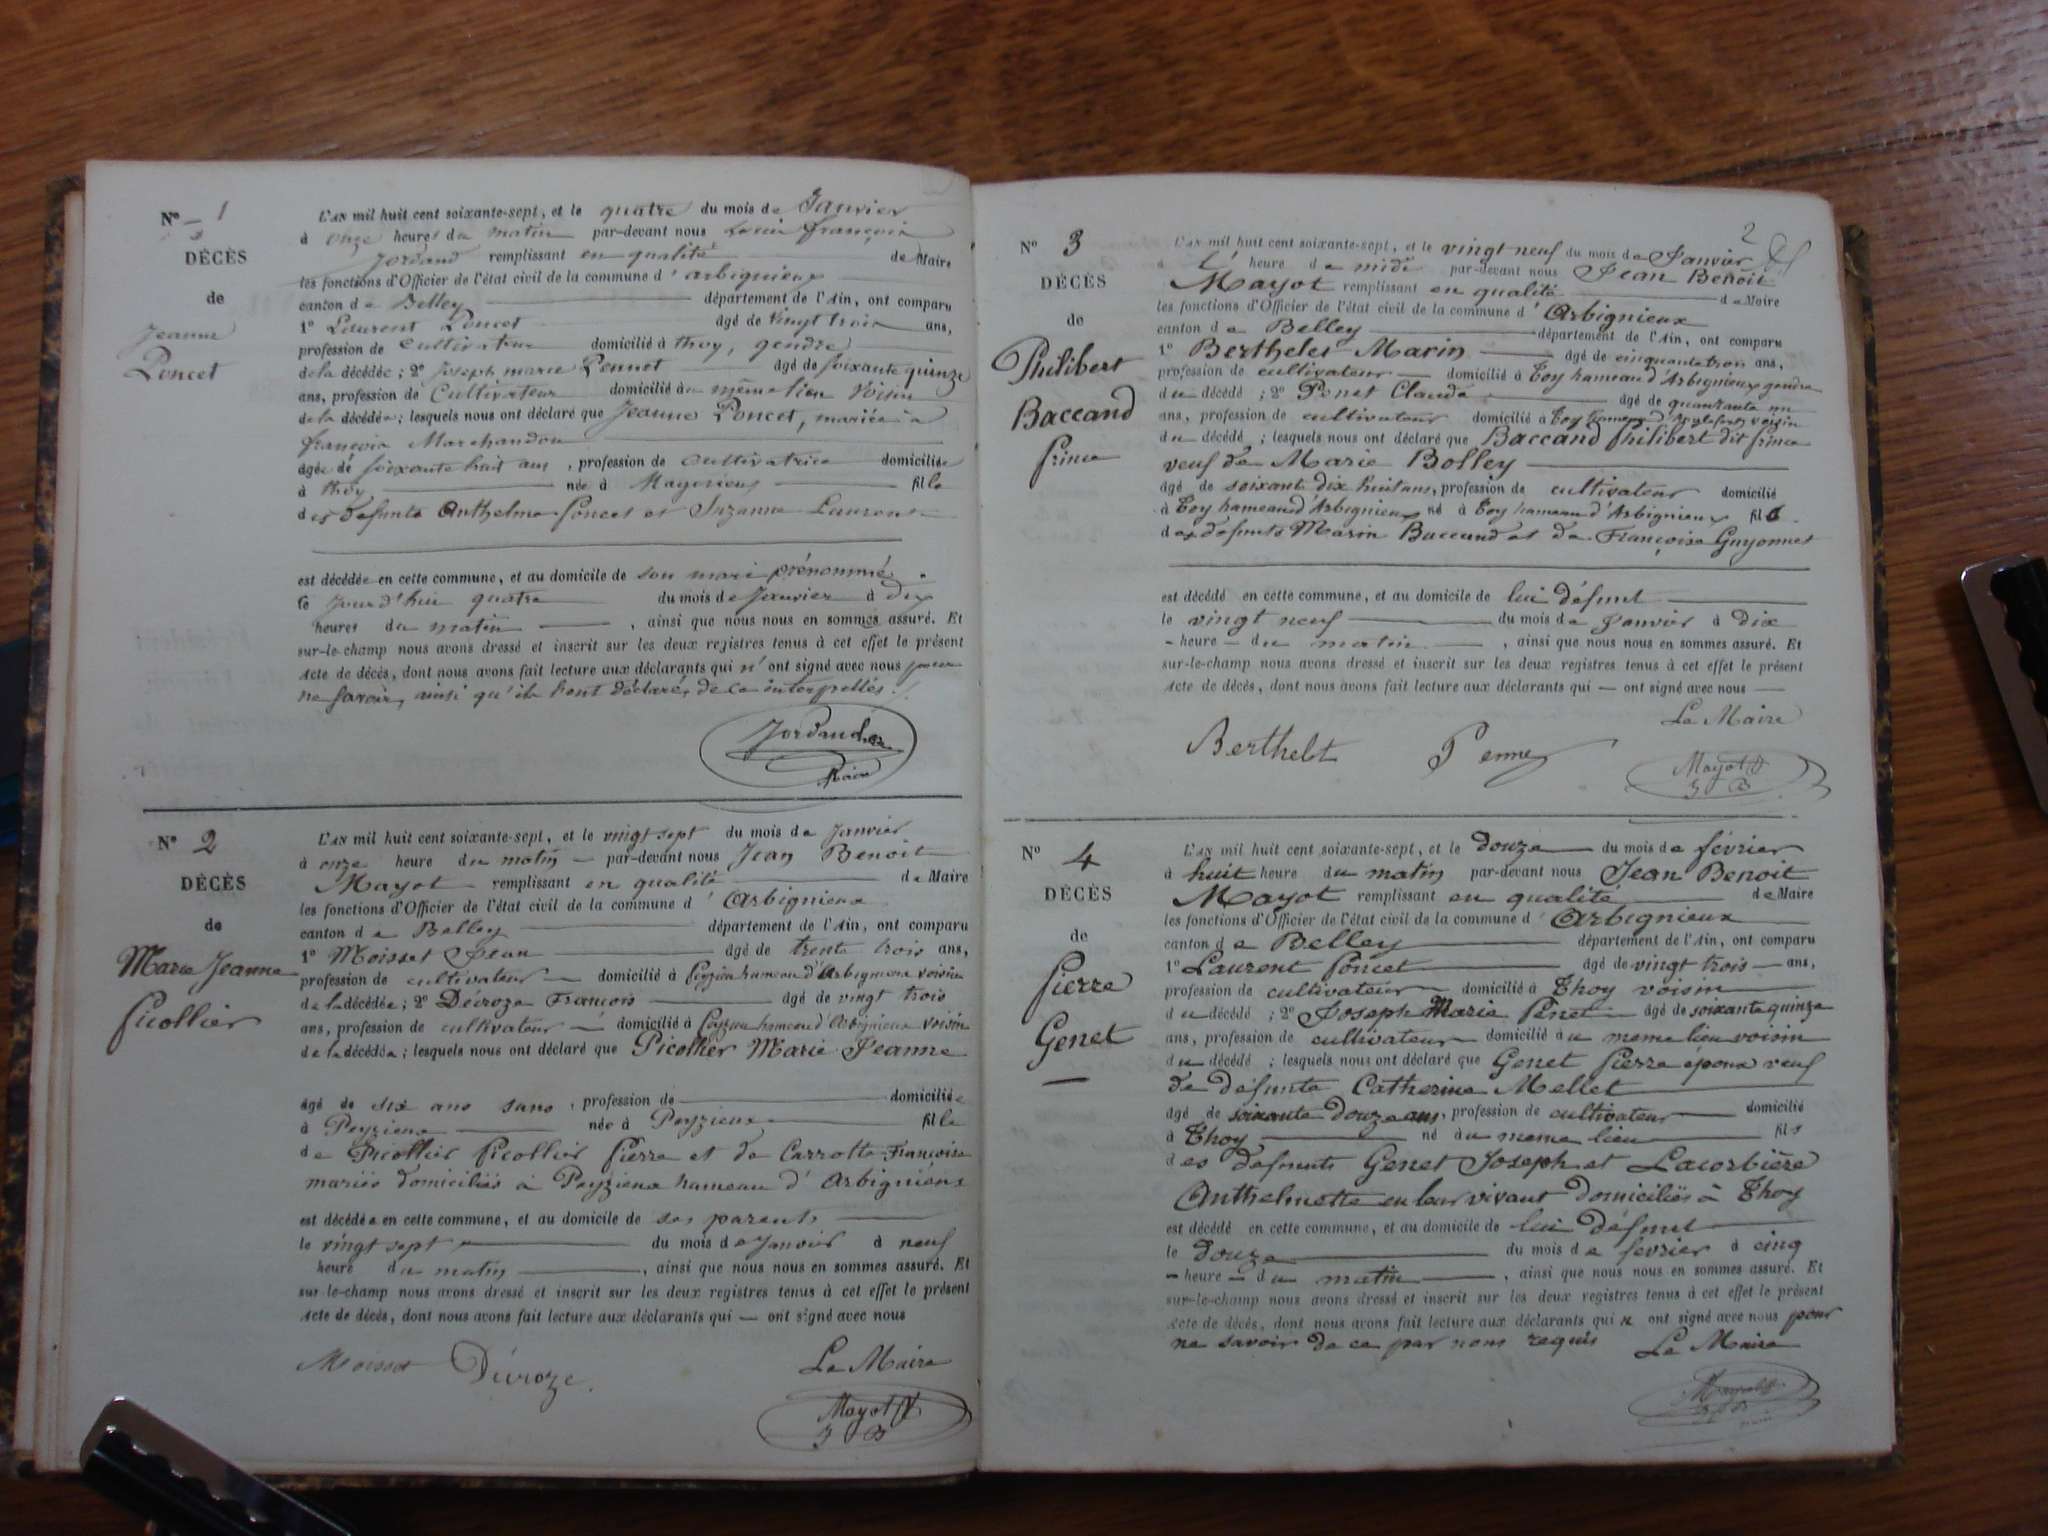 N° 1
DÉCÈS
de
Jeanne
Poncet
L'AN mil huit cent soixante-sept, et le quatre du mois de Janvier
à onze heures du matin par-devant nous Louis françois
Jordand remplissant en qualité de Maire
les fonctions d'Officier de l'état civil de la commune d'arbignieux
canton de Belley département de l'Ain, ont comparu
1° Laurent Poncet âgé de vingt trois ans,
profession de cultivateur domicilié à thoy, gendre
de la décédée; 2° joseph marie Pennet âgé de soixante quinze
ans, profession de Cultivateur domicilié au même lieu Voisin
de la décédée; lesquels nous ont déclaré que Jeanne Poncet, mariée à
françois Marchandon
âgée de soixante huit ans, profession de cultivatrice domiciliée
à thoy née à fille
des defunts Anthelme Poncet et Suzanne Laurent
est décédée en cette commune, et au domicile de son mari prénommé
le jourd'hui quatre du mois de Janvier à dix
heures du matin, ainsi que nous nous en sommes assuré. Et
sur-le-champ nous avons dressé et inscrit sur les deux registres tenus à cet effet le présent
acte de décès, dont nous avons fait lecture aux déclarants qui n'ont signé avec nous pour
ne savoir, ainsi qu'ils l'ont déclaré, de ce interpellés.
Jordand
Maire
N° 2
DÉCÈS
de
Marie Jeanne
Picollier
L'AN mil huit cent soixante-sept, et le vingt sept du mois de Janvier
à onze heure du matin par-devant nous Jean Benoit
Mayot remplissant en qualité de Maire
les fonctions d'Officier de l'état civil de la commune d'Arbignieux
canton de Belley département de l'Ain, ont comparu
1° Moisset Jean âgé de trente trois ans,
profession de cultivateur domicilié à Peyzieu hameau d'Arbignieux voisin
de la décédée; 2° Décroze François âgé de vingt trois
ans, profession de cultivateur domicilié à Peyzieu hameau d'Arbignieux voisin
de la décédée; lesquels nous ont déclaré que Picollier Marie Jeanne
âgé de six ans sans, profession de domiciliée
à Peyzieux née à Peyzieux fille
de Picollier Picollier Pierre et de Carrotte Françoise
mariés domiciliés à Peyzieux hameau d'Arbignieux
est décédée en cette commune, et au domicile de ses parents
le vingt sept du mois de Janvier à neuf
heure du matin, ainsi que nous nous en sommes assuré. Et
sur-le-champ nous avons dressé et inscrit sur les deux registres tenus à cet effet le présent
acte de décès, dont nous avons fait lecture aux déclarants qui — ont signé avec nous
Moisset Décroze Le Maire
Mayot
J B
2
N° 3
DÉCÈS
de
Philibert
Baccand
prince
L'AN mil huit cent soixante-sept, et le vingt neuf du mois de Janvier
à heure de midi par-devant nous Jean Benoit
Mayot remplissant en qualité de Maire
les fonctions d'Officier de l'état civil de la commune d'Arbignieux
canton de Belley département de l'Ain, ont comparu
1° Berthelet Marin âgé de cinquante trois ans,
profession de cultivateur domicilié à Toy hameau d'Arbignieux gendre
du décédé; 2° Penet Claude âgé de quarante un
ans, profession de cultivateur domicilié à Toy hameau d'Arbignieux voisin
du décédé; lesquels nous ont déclaré que Baccand Philibert dit prince
veuf de Marie Bolley
âgé de soixante dix huit ans, profession de cultivateur domicilié
à Toy hameau d'Arbignieux né à Toy hameau d'Arbignieux fils
des defunts Marin Baccand et de Françoise Guyonnet
est décédé en cette commune, et au domicile de lui défunt
le vingt neuf du mois de Janvier à dix
heure du matin, ainsi que nous nous en sommes assuré. Et
sur-le-champ nous avons dressé et inscrit sur les deux registres tenus à cet effet le présent
acte de décès, dont nous avons fait lecture aux déclarants qui — ont signé avec nous —
Le Maire
Berthelet Penne Mayot
J B
N° 4
DÉCÈS
de
Pierre
Genet
L'AN mil huit cent soixante-sept, et le douze du mois de février
à huit heure du matin par-devant nous Jean Benoit
Mayot remplissant en qualité de Maire
les fonctions d'Officier de l'état civil de la commune d'Arbignieux
canton de Belley département de l'Ain, ont comparu
1° Laurent Poncet âgé de vingt trois ans,
profession de cultivateur domicilié à Thoy voisin
du décédé; 2° Joseph Marie Penet âgé de soixante quinze
ans, profession de cultivateur domicilié au meme lieu voisin
du décédé; lesquels nous ont déclaré que Genet Pierre époux veuf
de défunte Catherine Mellet
âgé de soixante douze ans, profession de cultivateur domicilié
à Thoy né au meme lieu fils
des defunts Genet Joseph et Lacorbière
Anthelmette en leur vivant domiciliés à Thoy
est décédé en cette commune, et au domicile de lui défunt
le douze du mois de février à cinq
heure du matin, ainsi que nous nous en sommes assuré. Et
sur-le-champ nous avons dressé et inscrit sur les deux registres tenus à cet effet le présent
acte de décès, dont nous avons fait lecture aux déclarants qui n ont signé avec nous pour
ne savoir de ce par nous requis Le Maire